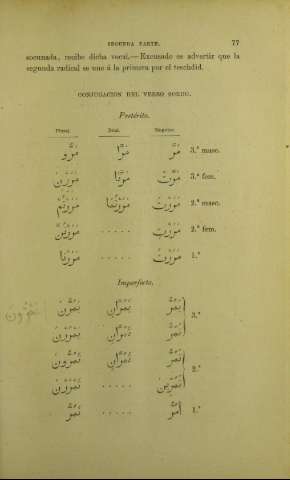 SEGUNDA PARTE. 77
socunada, recibe dicha vocal.—Excusado es advertir que la
segunda radical se une á la primera por el texdid.
CONJUGACION DEL VERBO SORDO.
Pretérito.
Plural. Dual. Singular.
مَرُّو مَرَّا مَرَّ 3.ª masc.
مَرَرْنَ مَرَّتَا مَرَّتْ 3.ª fem.
مَرَرْتُمْ مَرَرْتُمَا مَرَرْتَ 2.ª masc.
مَرَرْتُنَّ ..... مَرَرْتِ 2.ª fem.
مَرَرْنَا ..... مَرَرْتُ 1.ª
Imperfecto.
يَمُرُّونَ يَمُرَّانِ يَمُرُّ
3.ª
يَمْرُرْنَ تَمُرَّانِ تَمُرُّ
تَمُرُّونَ تَمُرَّانِ تَمُرُّ
2.ª
تَمْرُرْنَ ..... تَمُرِّينَ
نَمُرُّ ..... أَمُرُّ 1.ª